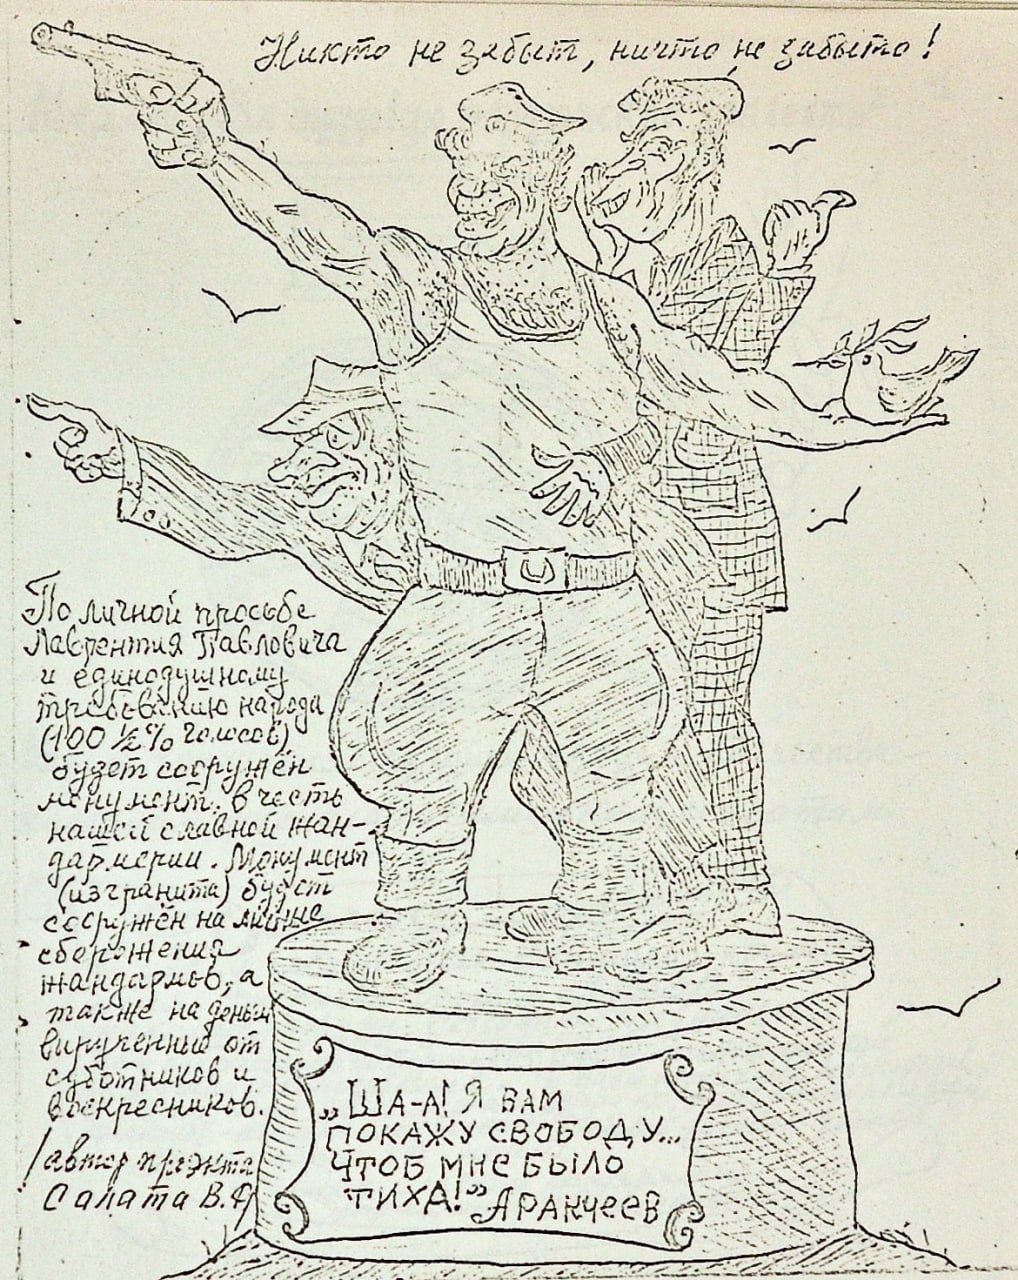 Никто не забыт, ничто не забыто!
По личной просьбе
Лаврентия Павловича
и единодушному
требованию народа
(100 ½% голосов)
будет сооружён
монумент в честь
нашей славной жан-
дармерии. Монумент
(из гранита) будет
сооружён на личные
сбережения
жандармов, а
также на деньги
вырученные от
суботников и
воскресников.
/автор проэкта
Салата В.Ф/
„ША-А! Я ВАМ
ПОКАЖУ СВОБОДУ...
ЧТОБ МНЕ БЫЛО
ТИХА!” АРАКЧЕЕВ